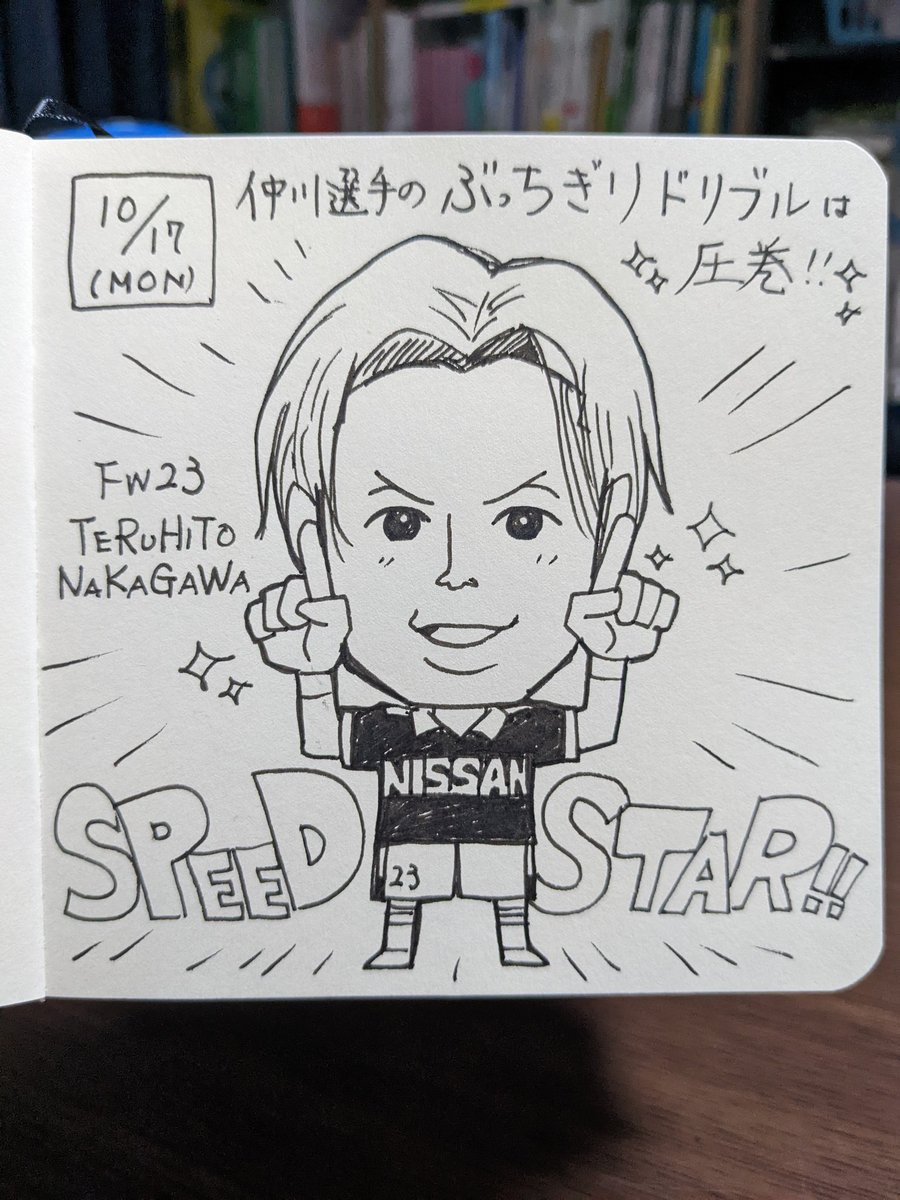 10/17
(MON)
仲川選手のぶっちぎりドリブルは
圧巻!!
FW23
TERUHITO
NAKAGAWA
NISSAN
SPEED STAR!!
23